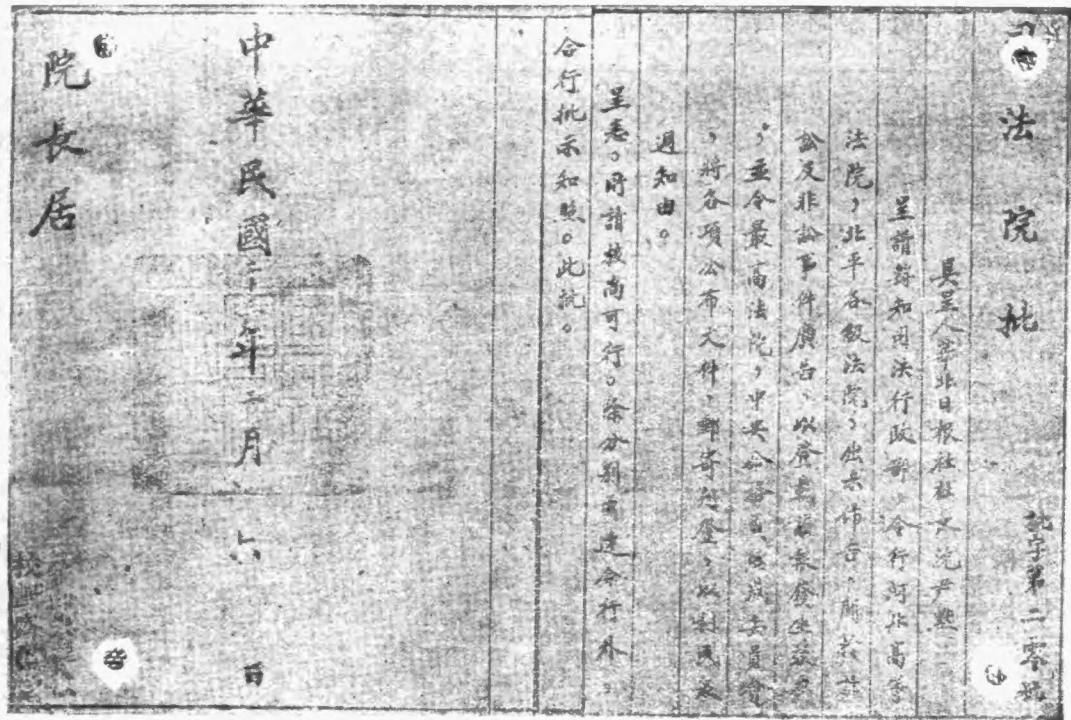 司法院批
批字第二零號
具呈人華北日報社社長沈尹默
呈請轉知司法行政部,令行河北高等
法院,北平各級法院,出示佈告,關於訴
訟及非訟事件廣告,以登載該報發生效力
,並令最高法院,中央公務員懲戒委員會
,將各項公布文件,郵寄照登,以利民眾
週知由。
呈悉,所請核尚可行。除分別函達令行外,
合行批示知照。此批。
中華民國二十 年二月 六 日
院長居